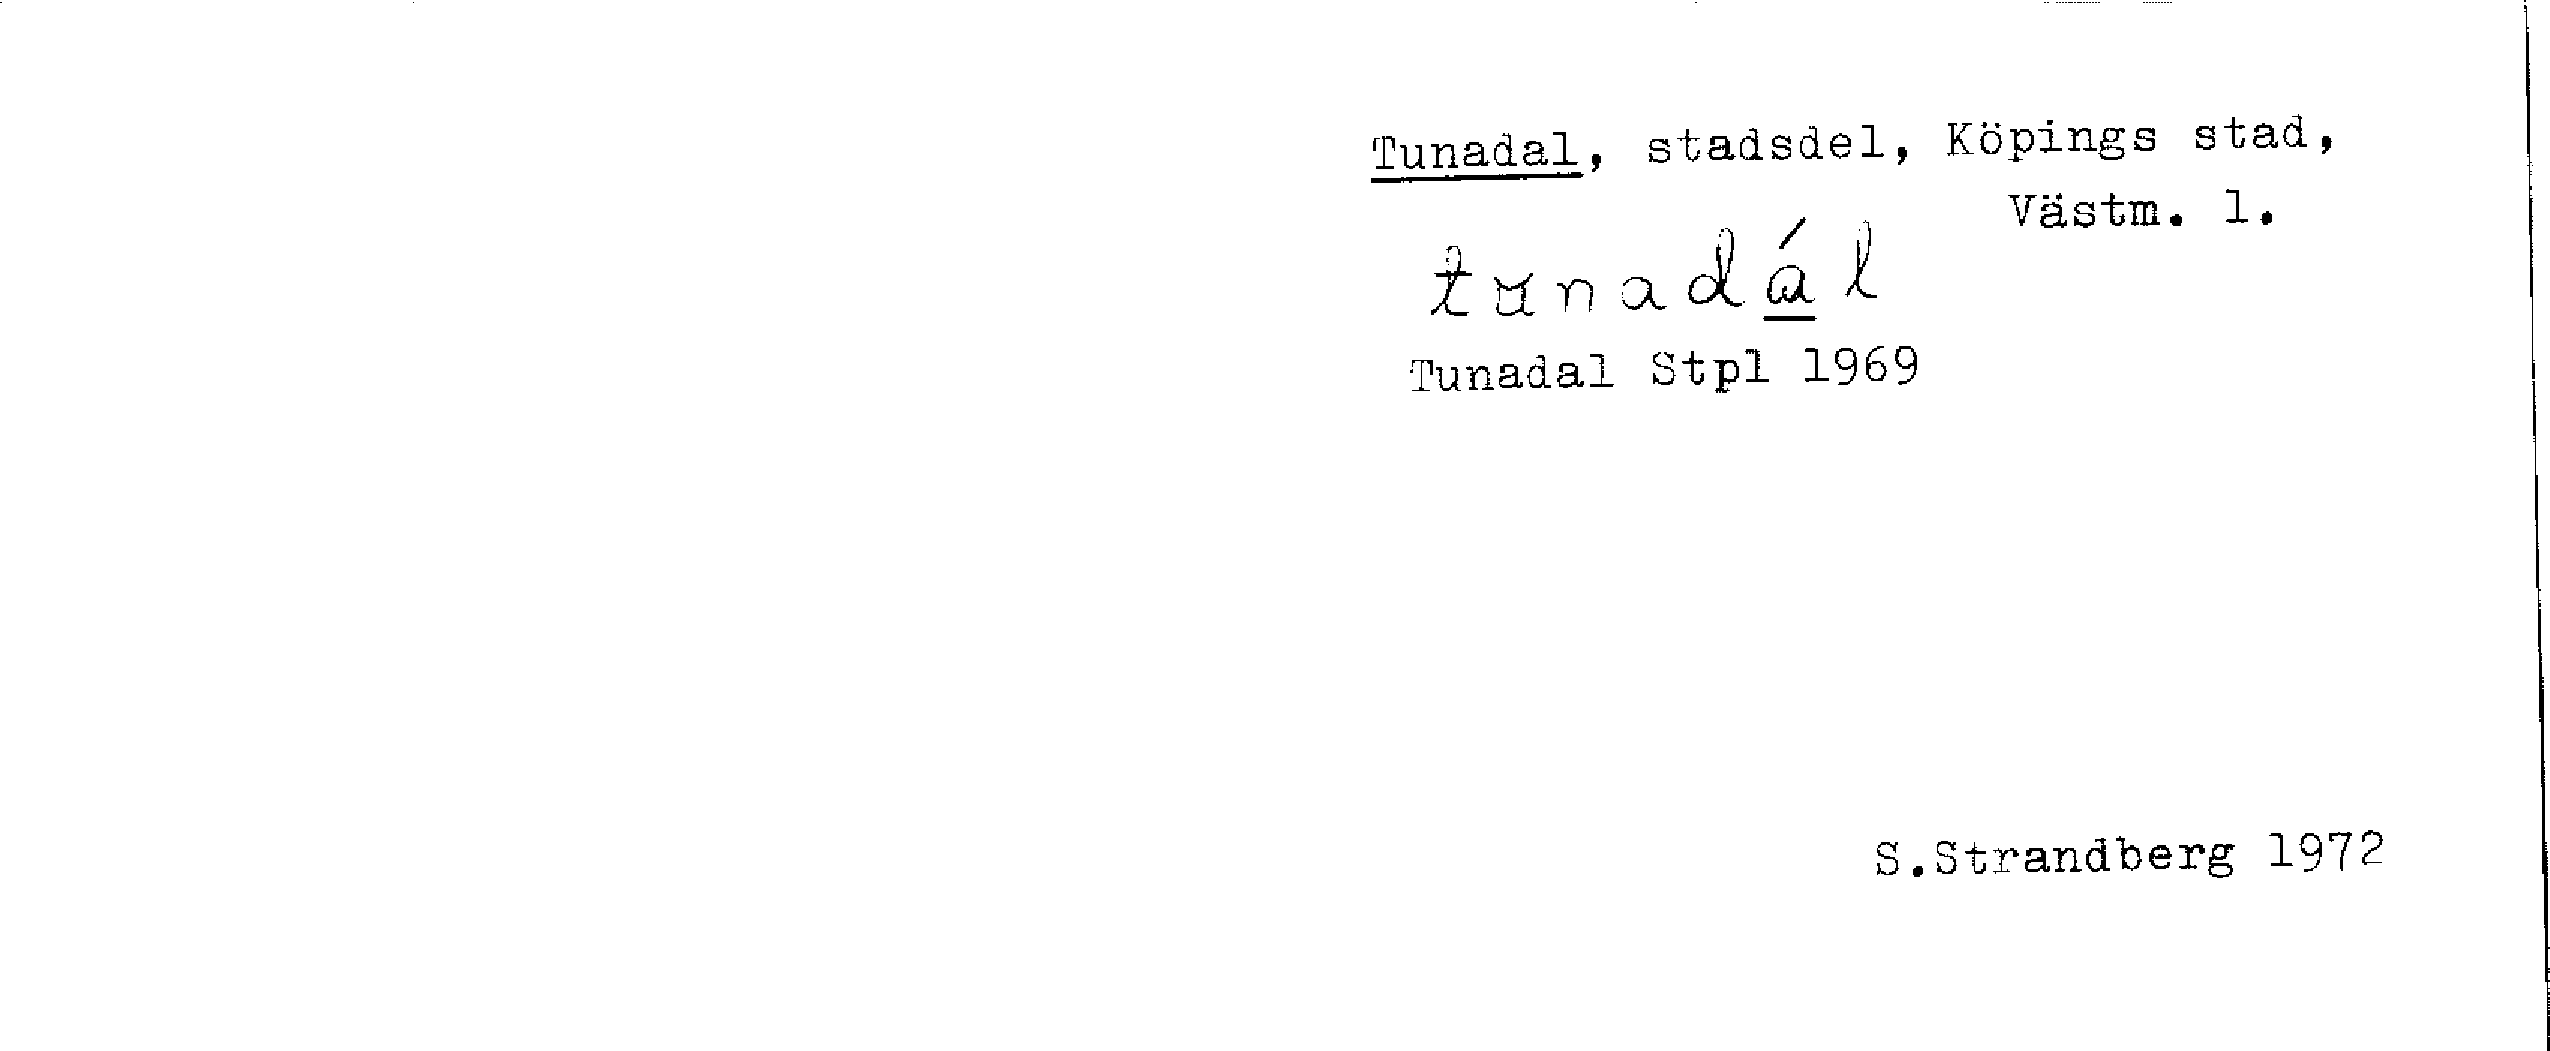 Tunadal, stadsdel, Köpings stad,
Västm. l.
tunadál
Tunadal Stpl 1969
S.Strandberg 1972